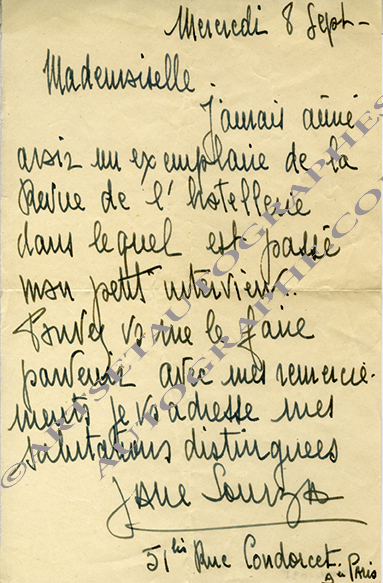 Mercredi 8 Sept-
Mademoiselle.
J'aurais aimé
avoir un exemplaire de la
Revue de l'hotellerie
dans lequel est passé
mon petit interview..
Pouvez vs me le faire
parvenir avec mes remercie-
ments je vs adresse mes
salutations distinguées
Jane Sourza
51 bis Rue Condorcet.
9e Paris
©ARTSETAUTOGRAPHES
AUTOGRAPHE.COM